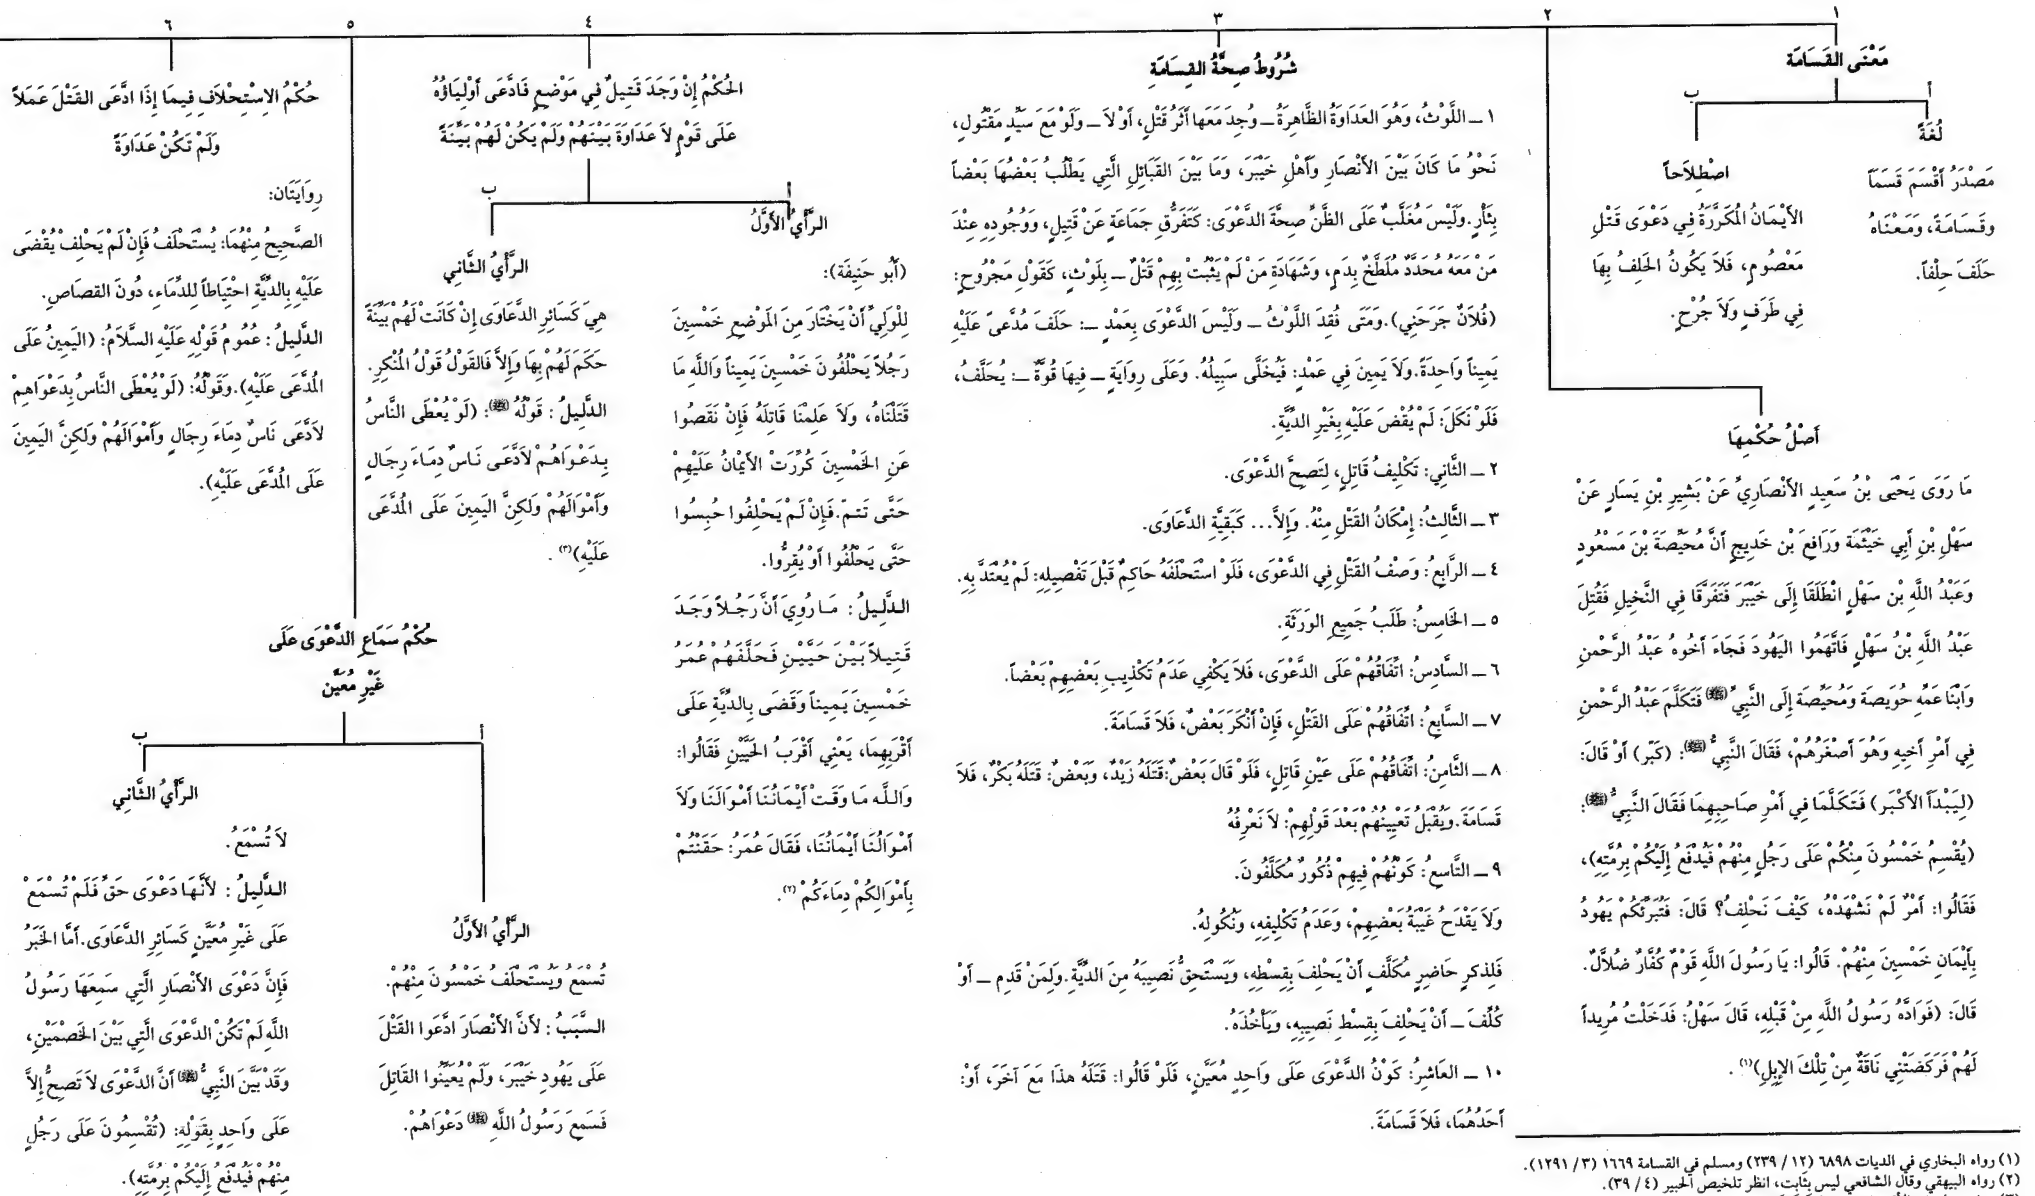 ١
مَعْنَى القَسَامَة
أ
لُغَةً
مَصْدَرُ أَقْسَمَ قَسَمَاً
وقَسَامَةً، وَمَعْنَاهُ
حَلَفَ حِلْفاً.
ب
اصْطِلَاحاً
الأَيْمَانُ المُكَرَّرَةُ فِي دَعْوَى قَتْلِ
مَعْصُومٍ، فَلاَ يَكُونُ الحَلِفُ بِهَا
فِي طَرَفٍ وَلاَ جُرْحٍ.
٢
أَصْلُ حُكْمِهَا
مَا رَوَى يَحْيَى بْنُ سَعِيدٍ الأَنْصَارِيِّ عَنْ بَشِيرِ بْنِ يَسَارٍ عَنْ
سَهْلِ بْنِ أَبِي خَيْثَمَة وَرَافِعَ بْن خَدِيجٍ أَنَّ مُحَيِّصَةَ بْنَ مَسْعُودٍ
وَعَبْدُ اللَّهِ بْن سَهْلٍ انْطَلَقَا إِلَى خَيْبَرَ فَتَفَرَّقَا فِي النَّخِيلِ فَقُتِلَ
عَبْدُ اللَّهِ بْنُ سَهْلٍ فَاتَّهَمُوا اليَهُودَ فَجَاءَ أَخُوهُ عَبْدُ الرَّحْمنِ
وَابْنَا عَمِّهِ حُوَيصَة وَمُحَيِّصَة إِلَى النَّبِيِّ (ﷺ) فَتَكَلَّمَ عَبْدُ الرَّحْمنِ
فِي أَمْرِ أَخِيهِ وَهُوَ أَصْغَرُهُمْ، فَقَالَ النَّبِيُّ (ﷺ): (كَبّر) أَوْ قَالَ:
(لِيَبْدَأَ الأَكْبَر) فَتَكَلَّمَا فِي أَمْرِ صَاحِبِهِمَا فَقَالَ النَّبِيُّ (ﷺ):
(يُقْسِمُ خَمْسُونَ مِنْكُم عَلَى رَجُلٍ مِنْهُمْ فَيُدْفَعُ إِلَيْكُمْ بِرُمَّتِهِ)،
فَقَالُوا: أَمْرٌ لَمْ نَشْهَدْهُ، كَيْفَ نَحْلِفُ؟ قَالَ: فَتُبَرِّئُكُمْ يَهُودُ
بِأَيْمَانِ خَمْسِينَ مِنْهُمْ. قَالُوا: يَا رَسُولَ اللَّهِ قَوْمٌ كُفَّارٌ ضُلاَّلٌ.
قَالَ: (فَوَادَّهُ رَسُولُ اللَّهِ مِنْ قِبَلِهِ، قَالَ سَهْلُ: فَدَخَلْتُ مُرِيداً
لَهُمْ فَرَكَضَتْنِي نَاقَةٌ مِنْ تِلْكَ الإِبِلِ)(١).
٣
شُرُوطُ صِحَّةُ القِسَامَةِ
١ ــ اللَّوْثُ، وَهُوَ العَدَاوَةُ الظَّاهِرَةُ ــ وُجِدَ مَعَهَا أَثَرُ قَتْلٍ، أَوْ لاَ ــ وَلَوْ مَعَ سَيِّدٍ مَقْتُولٍ،
نَحْوُ مَا كَانَ بَيْنَ الأَنْصَارِ وَأَهْلِ خَيْبَرَ، وَمَا بَيْنَ القَبَائِلِ الَّتِي يَطْلُبُ بَعْضُهَا بَعْضاً
بِثَأْرٍ. وَلَيْسَ مُغَلَّبٌ عَلَى الظَّنِّ صِحَّةَ الدَّعْوَى: كَتَفَرُّقِ جَمَاعَةٍ عَنْ قَتِيلٍ، وَوُجُودِهِ عِنْدَ
مَنْ مَعَهُ مُحَدَّدٌ مُلَطَّخٌ بِدَمٍ، وَشَهَادَةِ مَنْ لَمْ يَثْبُتْ بِهِمْ قَتْلٌ ــ بِلَوْثٍ، كَقَوْلِ مَجْرُوحٍ:
(فُلاَنٌ جَرَحَنِي). وَمَتَى فُقِدَ اللَّوْثُ ــ وَلَيْسَ الدَّعْوَى بِعَمْدٍ ــ: حَلَفَ مُدَّعىً عَلَيْهِ
يَمِيناً وَاحِدَةً. وَلاَ يَمِينَ فِي عَمْدٍ: فَيُخَلَّى سَبِيلُهُ. وَعَلَى رِوَايَةٍ ــ فِيهَا قُوَّةٌ ــ: يُحَلَّفُ،
فَلَوْ نَكَلَ: لَمْ يُقْضَ عَلَيْهِ بِغَيْرِ الدِّيَّةِ.
٢ ــ الثَّانِي: تَكْلِيفُ قَاتِلٍ، لِتَصِحَّ الدَّعْوَى.
٣ ــ الثَّالِثُ: إِمْكَانُ القَتْلِ مِنْهُ. وَإِلاَّ... كَبَقِيَّةِ الدَّعَاوَى.
٤ ــ الرَّابِعُ: وَصْفُ القَتْلِ فِي الدَّعْوَى، فَلَوْ اسْتَحْلَفَهُ حَاكِمٌ قَبْلَ تَفْصِيلِهِ: لَمْ يُعْتَدَّ بِهِ.
٥ ــ الخَامِسُ: طَلَبُ جَمِيعِ الوَرَثَةِ.
٦ ــ السَّادِسُ: اتِّفَاقُهُمْ عَلَى الدَّعْوَى، فَلاَ يَكْفِي عَدَمُ تَكْذِيبِ بَعْضِهِمْ بَعْضاً.
٧ ــ السَّابِعُ: اتِّفَاقُهُمْ عَلَى القَتْلِ، فَإِنْ أَنْكَرَ بَعْضٌ، فَلاَ قَسَامَةَ.
٨ ــ الثَّامِنُ: اتِّفَاقُهُمْ عَلَى عَيْنِ قَاتِلٍ، فَلَوْ قَالَ بَعْضٌ: قَتَلَهُ زَيْدٌ، وَبَعْضٌ: قَتَلَهُ بَكْرٌ، فَلاَ
قَسَامَةَ. وَيُقْبَلُ تَعْيِينُهُمْ بَعْدَ قَوْلِهِمْ: لاَ نَعْرِفُهُ
٩ ــ التَّاسِعُ: كَوْنُهُمْ فِيهِمْ ذُكُورٌ مُكَلَّفُونَ.
وَلاَ يَقْدَحُ غَيْبَةُ بَعْضِهِمْ، وَعَدَمُ تَكْلِيفِهِ، وَنُكُولِهُ.
فَلِذكرٍ حَاضِرٍ مُكَلَّفٍ أَنْ يَحْلِفَ بِقِسطِهِ، وَيَسْتَحِقُّ نَصِيبَهُ مِنَ الدِّيَّةِ. وَلِمَنْ قَدِم ــ أَوْ
كُلِّفَ ــ أَنْ يَحْلِفَ بِقِسْطِ نَصِيبِهِ، وَيَأْخُذَهُ.
١٠ ــ العَاشِرُ: كَوْنُ الدَّعْوَى عَلَى وَاحِدٍ مُعَيَّنٍ، فَلَوْ قَالُوا: قَتَلَهُ هذَا مَعَ آخَرَ، أَوْ:
أَحَدُهُمَا، فَلاَ قَسَامَةَ.
٤
الحُكْمُ إِنْ وَجَدَ قَتِيلٌ فِي مَوْضِعٍ فَادَّعَى أَوْلِيَاؤُهُ
عَلَى قَوْمٍ لاَ عَدَاوَةَ بَيْنَهُمْ وَلَمْ يَكُنْ لَهُمْ بَيِّنَةً
أ
الرَّأْيُ الأَوَّلُ
(أَبُو حَنِيفَة):
لِلْوَلِيِّ أَنْ يَخْتَارَ مِنَ المَوْضِعِ خَمْسِينَ
رَجُلاً يَحْلُفُونَ خَمْسِينَ يَمِيناً وَاللَّهِ مَا
قَتَلْنَاهُ، وَلاَ عَلِمْنَا قَاتِلَهُ فَإِنْ نَقَصُوا
عَنِ الخَمْسِينَ كُرِّرَتْ الأَيْمَانُ عَلَيْهِمْ
حَتَّى تَتمّ. فَإِنْ لَمْ يَحْلِفُوا حُبِسُوا
حَتَّى يَحْلُفُوا أَوْ يُقِرُّوا.
الدَّلِيلُ: مَا رُوِيَ أَنَّ رَجُلاً وَجَدَ
قَتِيلاً بَيْنَ حَيَّيْنِ فَحَلَّفَهُمْ عُمَرُ
خَمْسِينَ يَمِيناً وَقَضَى بِالدِّيَّةِ عَلَى
أَقْرَبِهِمَا، يَعْنِي أَقْرَبُ الحَيَّيْنِ فَقَالُوا:
وَاللَّه مَا وَقَتْ أَيْمَانُنَا أَمْوَالَنَا وَلاَ
أَمْوَالُنَا أَيْمَانُنَا، فَقَالَ عُمَرُ: حَقَنْتُم
بِأَمْوَالِكُمْ دِمَاءَكُمْ (٢).
ب
الرَّأْيُ الثَّانِي
هِيَ كَسَائِرِ الدَّعَاوَى إِنْ كَانَتْ لَهُمْ بَيِّنَةً
حَكَمَ لَهُمْ بِهَا وَإِلاَّ فَالقَوْلُ قَوْلُ المُنْكِرِ.
الدَّلِيلُ: قَوْلُهُ (ﷺ): (لَوْ يُعْطَى النَّاسُ
بِدَعْوَاهُمْ لاَدَّعَى نَاسٌ دِمَاءَ رِجَالٍ
وَأَمْوَالَهُمْ وَلَكِنَّ اليَمِينَ عَلَى المُدَّعَى
عَلَيْهِ)(٣).
٥
حُكْمُ سَمَاعِ الدَّعْوَى عَلَى
غَيْرِ مُعَيَّن
أ
الرَّأْيُ الأَوَّلُ
تُسْمَعُ وَيُسْتَحْلَفُ خَمْسُونَ مِنْهُمْ.
السَّبَبُ: لأَنَّ الأَنْصَارَ ادَّعَوا القَتْلَ
عَلَى يَهُودِ خَيْبَرَ، وَلَمْ يُعَيِّنُوا القَاتِلَ
فَسَمِعَ رَسُولُ اللَّهِ (ﷺ) دَعْوَاهُمْ.
ب
الرَّأْيُ الثَّانِي
لاَ تُسْمَعُ.
الدَّلِيلُ: لأَنَّهَا دَعْوَى حَقٍّ فَلَمْ تُسْمَعْ
عَلَى غَيْرِ مُعَيَّنٍ كَسَائِرِ الدَّعَاوَى. أَمَّا الخَبَرُ
فَإِنَّ دَعْوَى الأَنْصَارِ الَّتِي سَمِعَهَا رَسُولُ
اللَّهِ لَمْ تَكُنْ الدَّعْوَى الَّتِي بَيْنَ الخَصْمَيْنِ،
وَقَدْ بَيَّنَ النَّبِيُّ (ﷺ) أَنَّ الدَّعْوَى لاَ تَصِحُّ إِلاَّ
عَلَى وَاحِدٍ بِقَوْلِهِ: (تُقْسِمُونَ عَلَى رَجُلٍ
مِنْهُمْ فَيُدْفَعُ إِلَيْكُمْ بِرُمَّتِهِ).
٦
حُكْمُ الاِسْتِحْلاَفِ فِيمَا إِذَا ادَّعَى القَتْلَ عَمَلاً
وَلَمْ تَكُنْ عَدَاوَةً
رِوَايَتَان:
الصَّحِيحُ مِنْهُمَا: يُسْتَحْلَفُ فَإِنْ لَمْ يَحْلِفْ يُقْضَى
عَلَيْهِ بِالدِّيَّةِ احْتِيَاطاً لِلدِّمَاءِ، دُونَ القصَاصِ.
الدَّلِيلُ: عُمُومُ قَوْلِهِ عَلَيْهِ السَّلاَمُ: (اليَمِينُ عَلَى
المُدَّعَى عَلَيْهِ). وَقَوْلُهُ: (لَوْ يُعْطَى النَّاسُ بِدَعْوَاهِمْ
لاَدَّعَى نَاسٌ دِمَاءَ رِجَالٍ وَأَمْوَالَهُمْ وَلَكِنَّ اليَمِينَ
عَلَى المُدَّعَى عَلَيْهِ).
(١) رواه البخاري في الديات ٦٨٩٨ (١٢ / ٢٣٩) ومسلم في القسامة ١٦٦٩ (٣ / ١٢٩١).
(٢) رواه البيهقي وقال الشافعي ليس بثابت، انظر تلخيص الحبير (٤ / ٣٩).